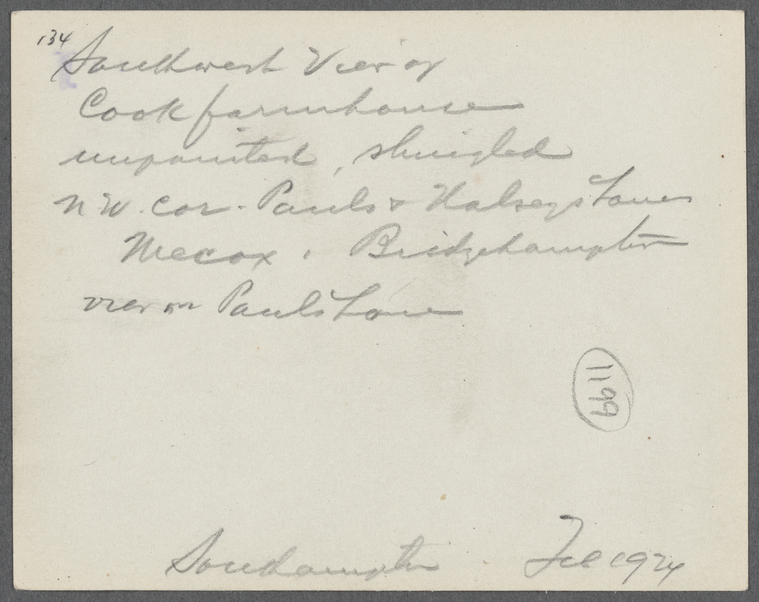 134
Southwest View of
Cook farmhouse
unpainted, shingled
NW. cor. Pauls & Halseys Lanes
Mecox, Bridgehampton
view on Pauls Lane
1199
Southampton 1924